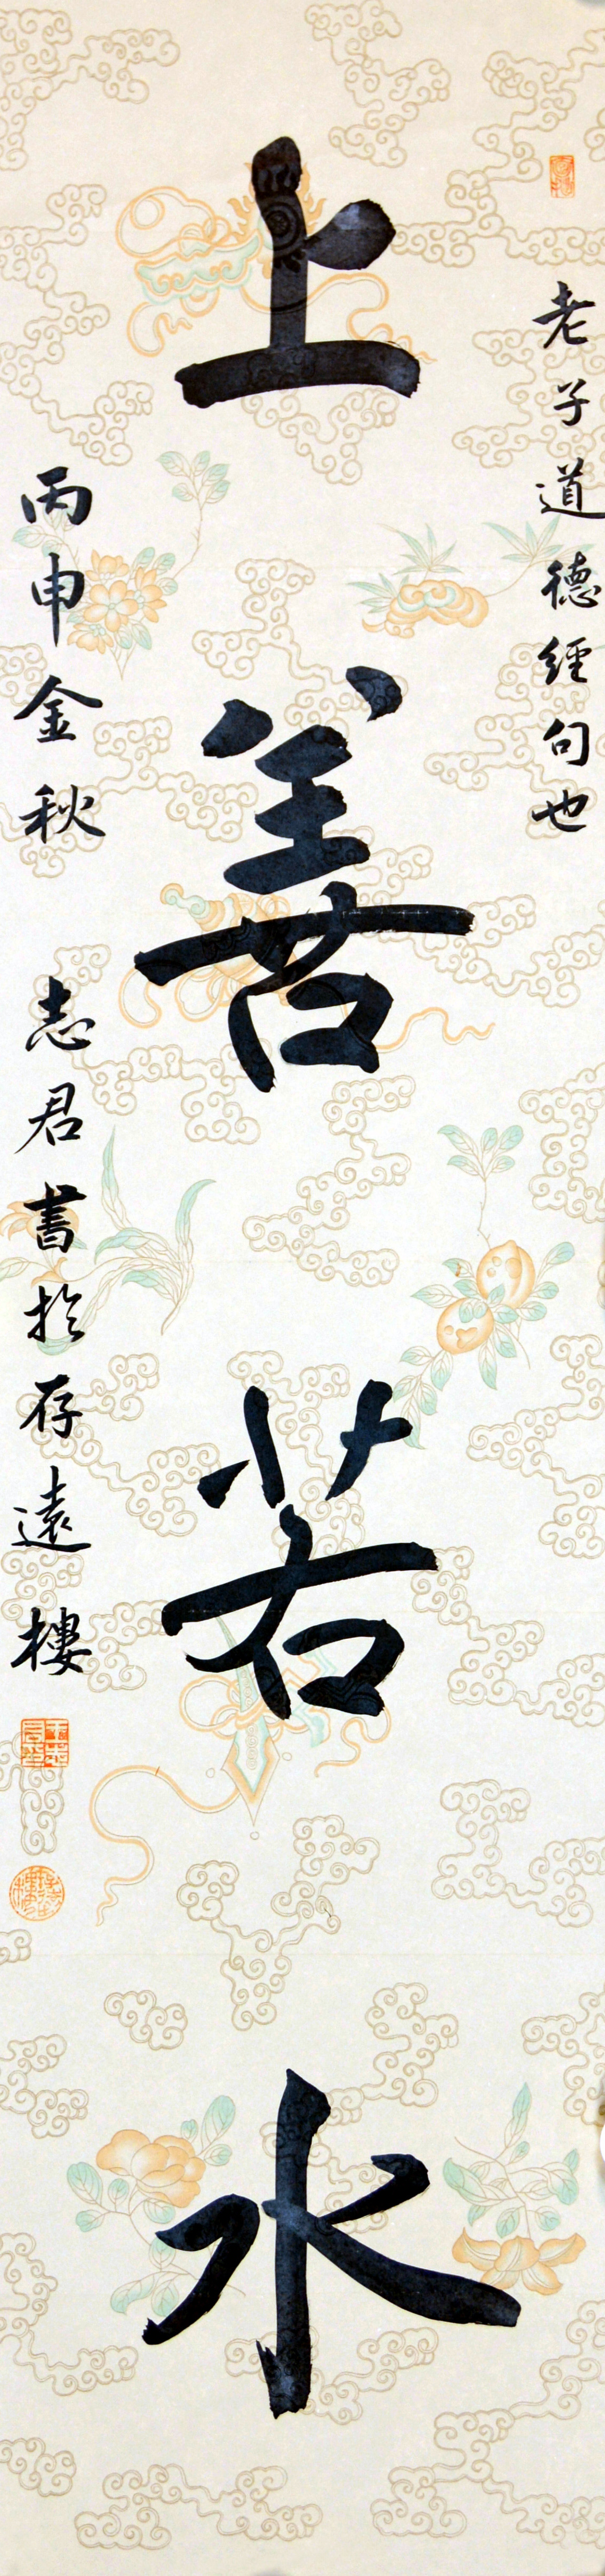 老子道德經句也
上善若水
丙申金秋 志君書於存遠樓